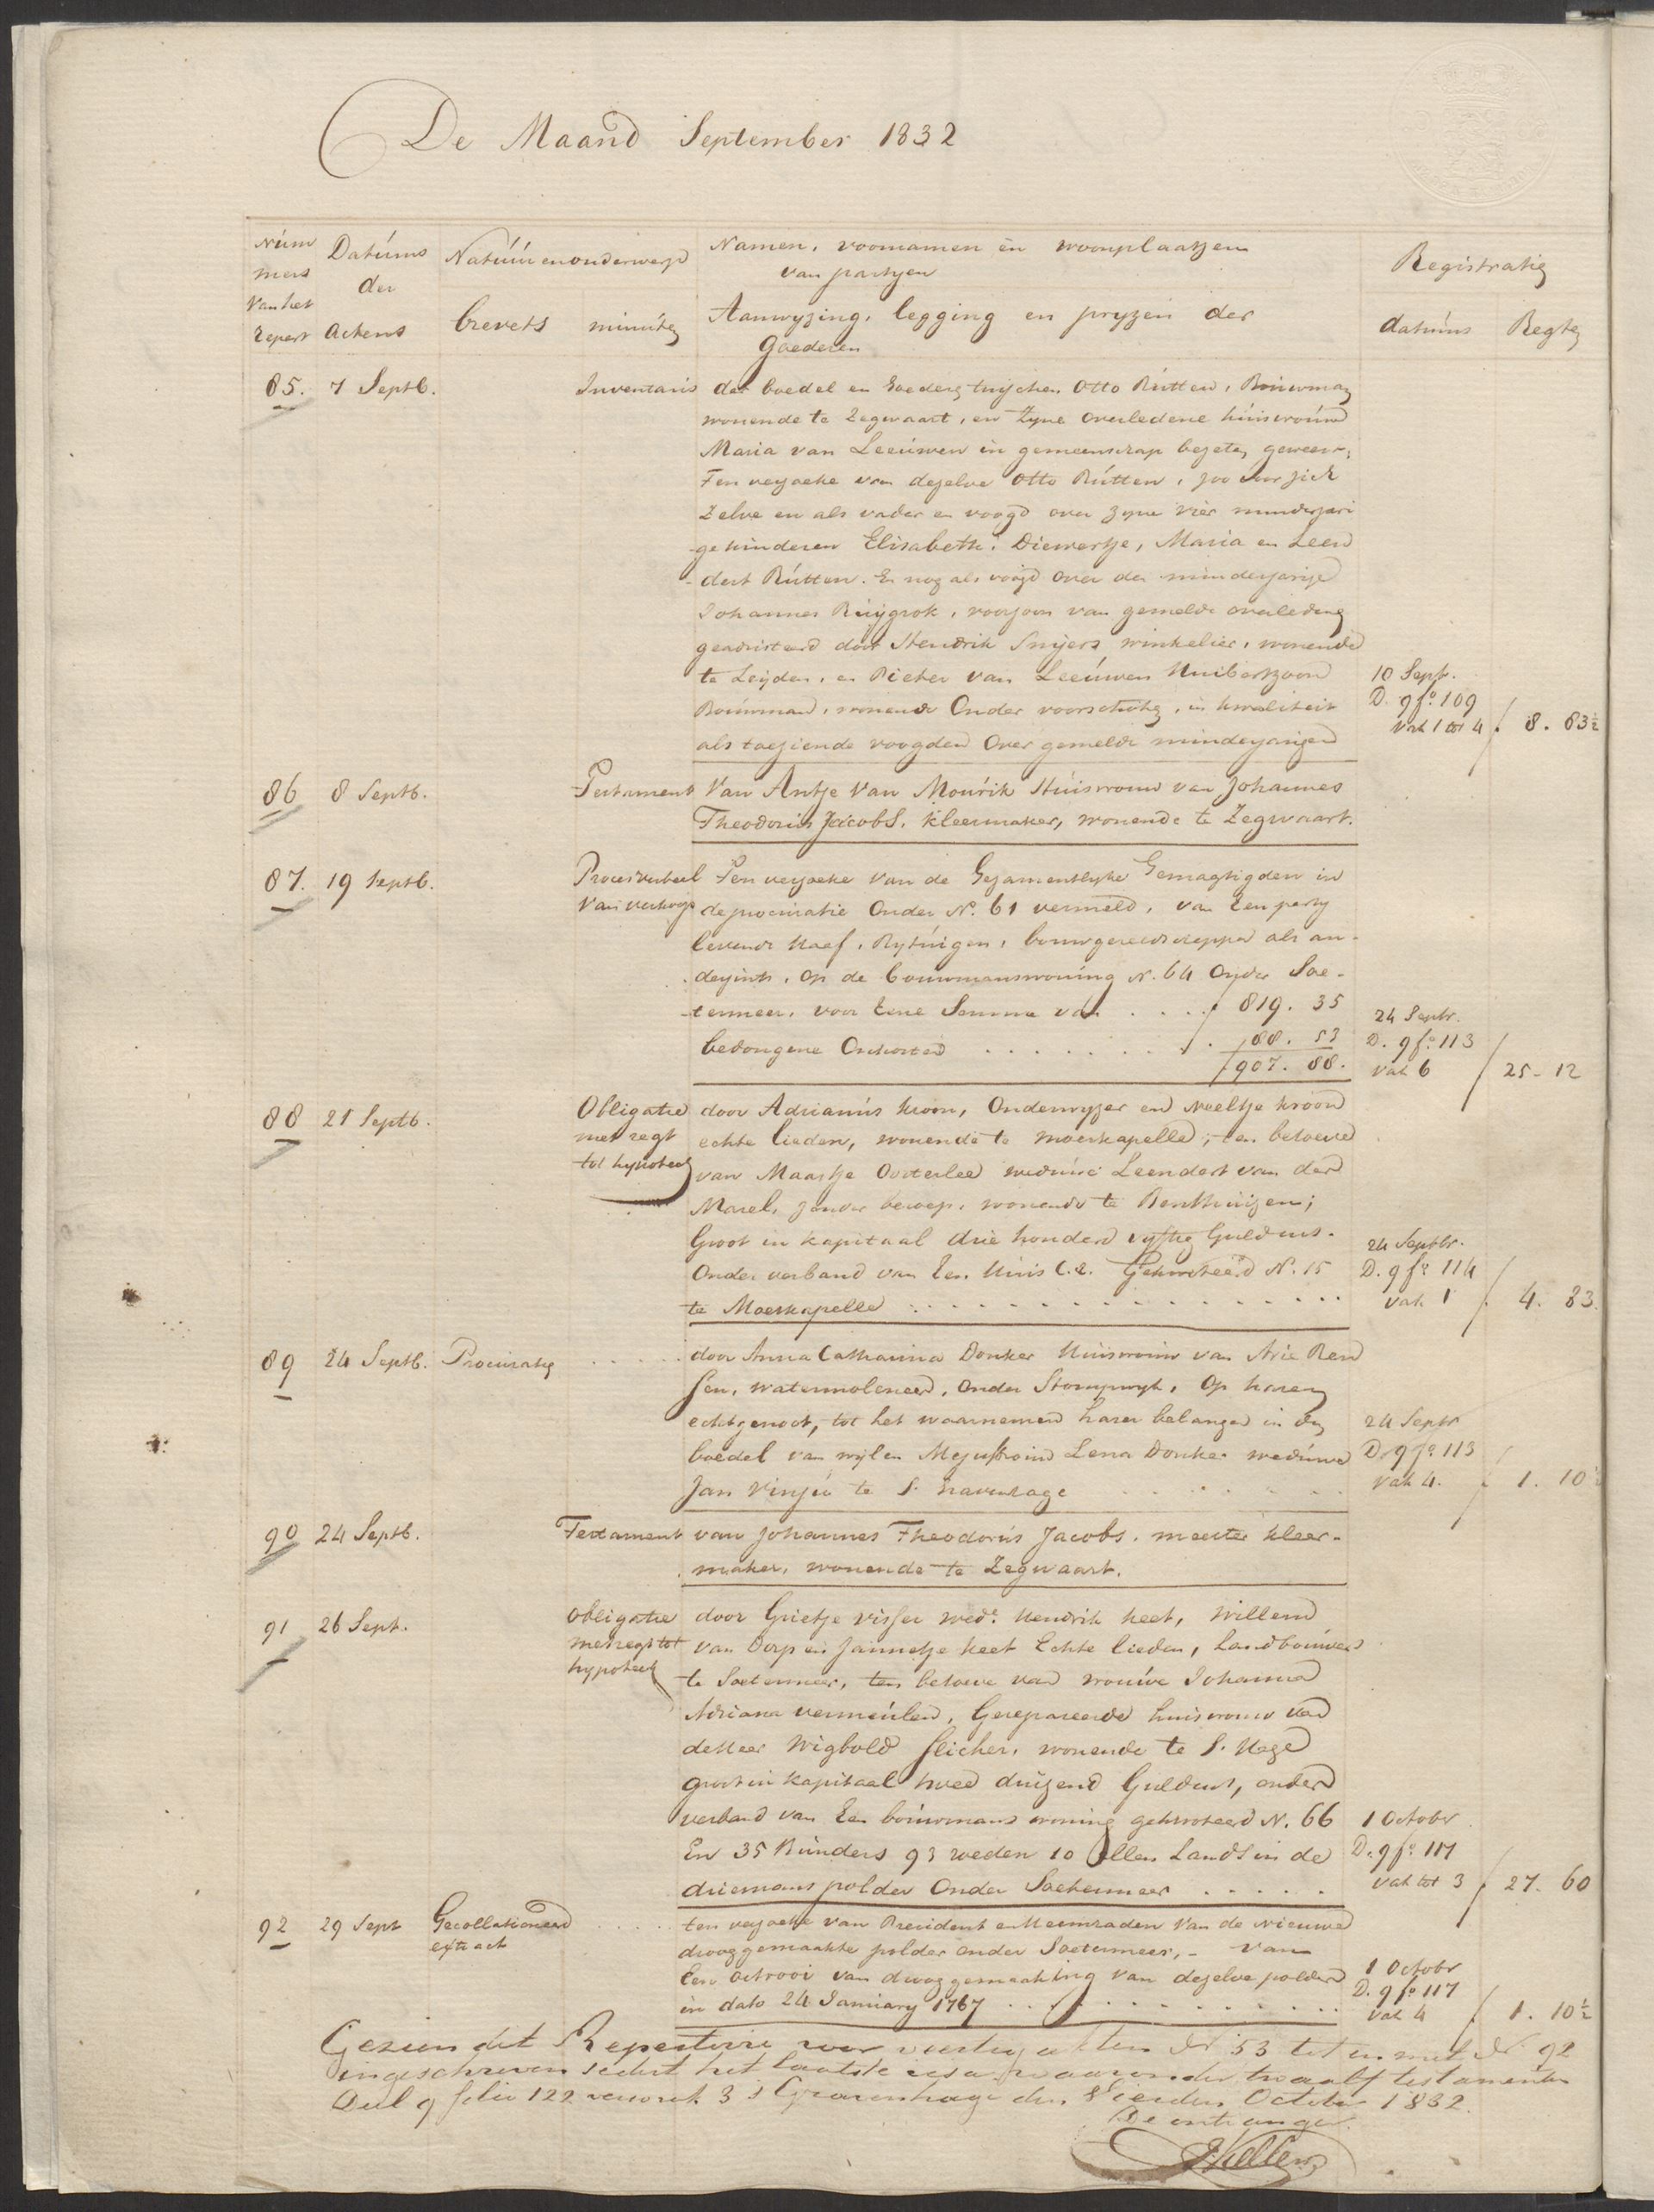 De Maand September 1832
Núm
mers
van het
repert
Datúms
der
Actens
Natúúr en onderwerp
brevets minúten
Namen, voornamen en woonplaatzen
van partyen
Aanwyzing, legging en pryzen der
Goederen
Registratie
datúms Regten
85. 7 Septb. Inventaris des boedel en Goederen tusschen Otto Rútten, Bouwman
wonende te Zegwaart, en Zyne overledene húisvrouw
Maria van Leeúwen in gemeenschap bezeten geweest,
Ten verzoeke van dezelve Otto Rútten, zoo voor zich
Zelve en als vader en voogd over zyne vier minderjari
-ge kinderen Elisabeth, Diewertje, Maria en Leen
-dert Rútten. En nog als voogd over den minderjarige
Johannes Rúygrok, voorzoon van gemelde overledene
geadsisteerd door Hendrik Snijers winkelier, wonende
te Leijden, en Pieter van Leeúwen Huibertzoon
Bouwman, wonende Onder voorschoten, in kwaliteit
als toeziende voogden Over gemelde minderjarigen
10 Sept.
D. 9 fo. 109
vak 1 tot 4 f 8. 83½
86 8 Septb. Testament Van Antje Van Moúrik Húisvrouw van Johannes
Theodorús Jacobs, kleermaker, wonende te Zegwaart.
87. 19 Septb. Procesverbaal Ten verzoeke Van de Gezamentlyke Gemagtigden in
van verkoop de procuratie Onder N. 61 vermeld, van Een party
levende Have, Rytúigen, bouwgereedschappen als an-
-derzints, Op de bouwmanswoning N. 64 Onder Soe-
-termeer, voor Eene Somma van . . . . f 819. 35
bedongene Onkosten . . . . . . . . 88. 53
f 907. 88.
24 Septr.
D. 9 fo. 113
vak 6 f 25 - 12
88 21 Septb. Obligatie door Adrianús kroon, Onderwyzer en Neeltje kroon
met regt echte lieden, wonende te Moerkapelle; ten behoeve
tot hypoteek van Maartje Oosterlee weduwe Leendert van der
Marel, zonder beroep, wonende te Benthuizen;
Groot in kapitaal drie honderd vyftig Guldens.
Onder verband van Een Huis C.A. Gekwoteerd N. 15
te Moerkapelle . . . . . . . . . . . . . . . .
24 Septbr.
D. 9 fo. 114
vak 1 f 4. 83.
89 24 Septb. Procuratie . . . . . door Anna Catharina Donker Huisvrouw van Arie Ren
sen, watermolenaar, Onder Stompwyk, Op haren
echtgenoot, tot het waarnemen harer belangen in den
boedel van wijlen Mejuffrouw Lena Donker wedúwe
Jan Vinjú te S. Gravenhage . . . . . . .
24 Septr
D. 9 fo. 113
vak 4. f 1. 10½
90 24 Septb. Testament van Johannes Theodorús Jacobs, meester kleer-
maker, wonende te Zegwaart.
91 26 Sept. Obligatie door Grietje visser wede. Hendrik Keet, Willem
met regt tot van Dorp en Jannetje Keet Echte lieden, Landbouwers
hypoteek te Soetermeer, ten behoeve van vrouwe Johanna
Adriana vermeúlen, Gesepareerde huisvrouw van
de Heer Wigbold Slicher, wonende te S. Hage
groot in kapitaal twee duizend Guldens, onder
verband van Een bouwmans woning gekwoteerd N. 66
En 35 Bunders 93 roeden 10 Ellen Lands in de
driemans polder Onder Soetermeer . . . . . .
1 Octobr
D. 9 fo. 117
vak tot 3 f 27. 60
92 29 Sept Gecollationeerd . . . . . ten verzoeke van President en Heemraden Van de Nieuwe
extract drooggemaakte polder onder Soetermeer, - Van
Een Octrooi van drooggemaking van dezelve polder
in dato 24 January 1767 . . . . . . . . . . .
1 Octobr
D. 9 fo 117
vak 4 f 1. 10½
Gezien dit Repertoire voor veertig akten No 53 tot en met No 92
ingeschreven sedert het laatste visa waaronder twaalf testamenten
Deel 9 folio 122 verso vak 3 's Gravenhage den October 1832.
De ontvanger